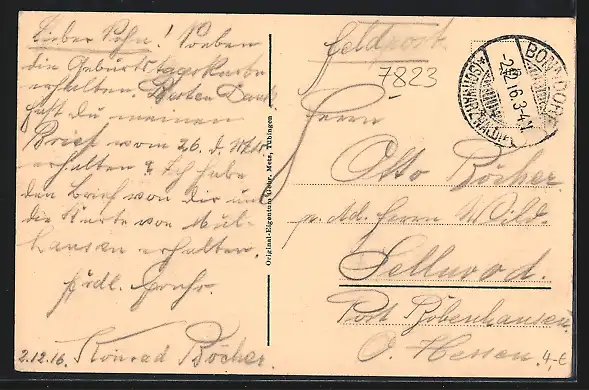 Lieber Sohn! Soeben
die Geburtstagskarte
erhalten. Besten Dank
hast du meinen
Brief vom 26. d. Mts.
erhalten? Ich habe
den Brief von dir und
die Karte von Mül-
hausen erhalten.
2.12.16. Konrad Böcher.
Original-Eigentum Gebr. Metz, Tübingen
Feldpost.
7823
BONNDORF
2.12.16.3-4 N
(SCHWARZWALD)
Herrn
Otto Böcher.
p. Ad. Herrn Wild.
Sellnrod.
Post Bobenhausen
O. Hessen
4,-€